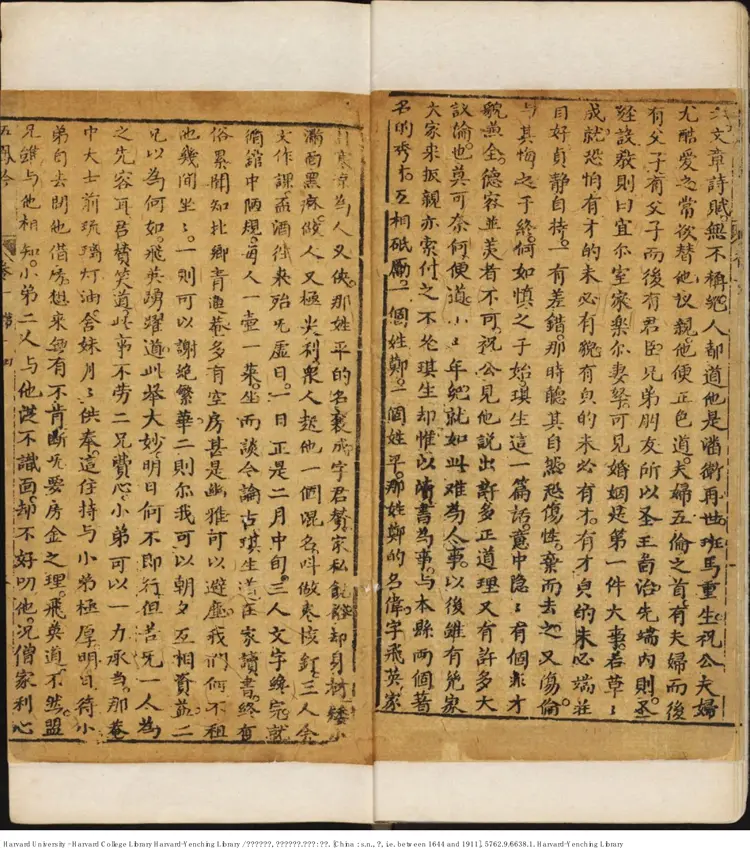 文章詩賦無不稱絕人都道他是潘衛再世班馬重生祝公夫婦
尤酷愛之常欲替他議親他便正色道夫婦五倫之首有夫婦而後
有父子有父子而後有君臣兄弟朋友所以圣王為治先端內則丕
致則曰宜尔室家樂尔妻孥可見婚姻是第一件大事若草〻
成就恐怕有才的未必有貌有貞的未必有才有才貞的未必端莊
自好貞靜自持一有差錯那時聽其自然恐傷性棄而去之又傷倫
与其悔之于終何如慎之于始琪生這一篇話意中隐〻有個非才
貌兼全德容並美者不可祝公見他説出許多正道理又有許多大
議論也莫可奈何便道小〻年紀就如此难為人事以後雖有幾家
大家来扳親亦索付之不论琪生却惟以讀書為事与本縣兩個著
名的秀才互相砥礪一個姓鄭一個姓平那姓鄭的名偉字飛英家
寒凉為人又俠那姓平的名襄成字君贊家私饒却身材矮小
滿面黑麻做人又極尖利衆人起他一個混名叫做枣核釘三人会
文作課盃酒往来殆旡虚日一日正是二月中旬三人文字纔完就
循館中陋規每人一壷一菜坐而談今論古琪生道在家讀書終有
俗累聞知北鄉青蓮菴多有空房甚是幽雅可以避塵我們何不租
他幾间坐〻一則可以謝絶繁華二則尔我可以朝夕互相資益二
兄以為何如飛英踴躍道此举大妙明日何不即行但苦旡一人為
之先容耳君贊笑道此事不劳二兄費心小弟可以一力承当那菴
中大士前琉璃灯油舍妹月〻供奉這住持与小弟極厚明日待小
弟自去問他借房想来無有不肯断旡要房金之理飛英道不然盟
兄雖与他相知小弟二人与他從不識面却不好叨他况僧家利心
五鳳吟